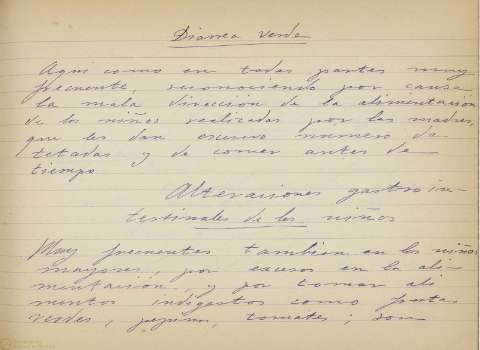 Diarrea verde
Aqui como en todas partes muy
frecuente, reconociendo por causa
la mala dirección de la alimentacion
de los niños realizada por las madres,
que les dan excesivo numero de
tetadas y de comer antes de
tiempo
Alteraciones gastroin-
testinales de los niños
Muy frecuentes tambien en los niños
mayores, por excesos en la ali-
mentación, y por tomar ali
mentos indigestos como frutas
verdes, pepino, tomates; son